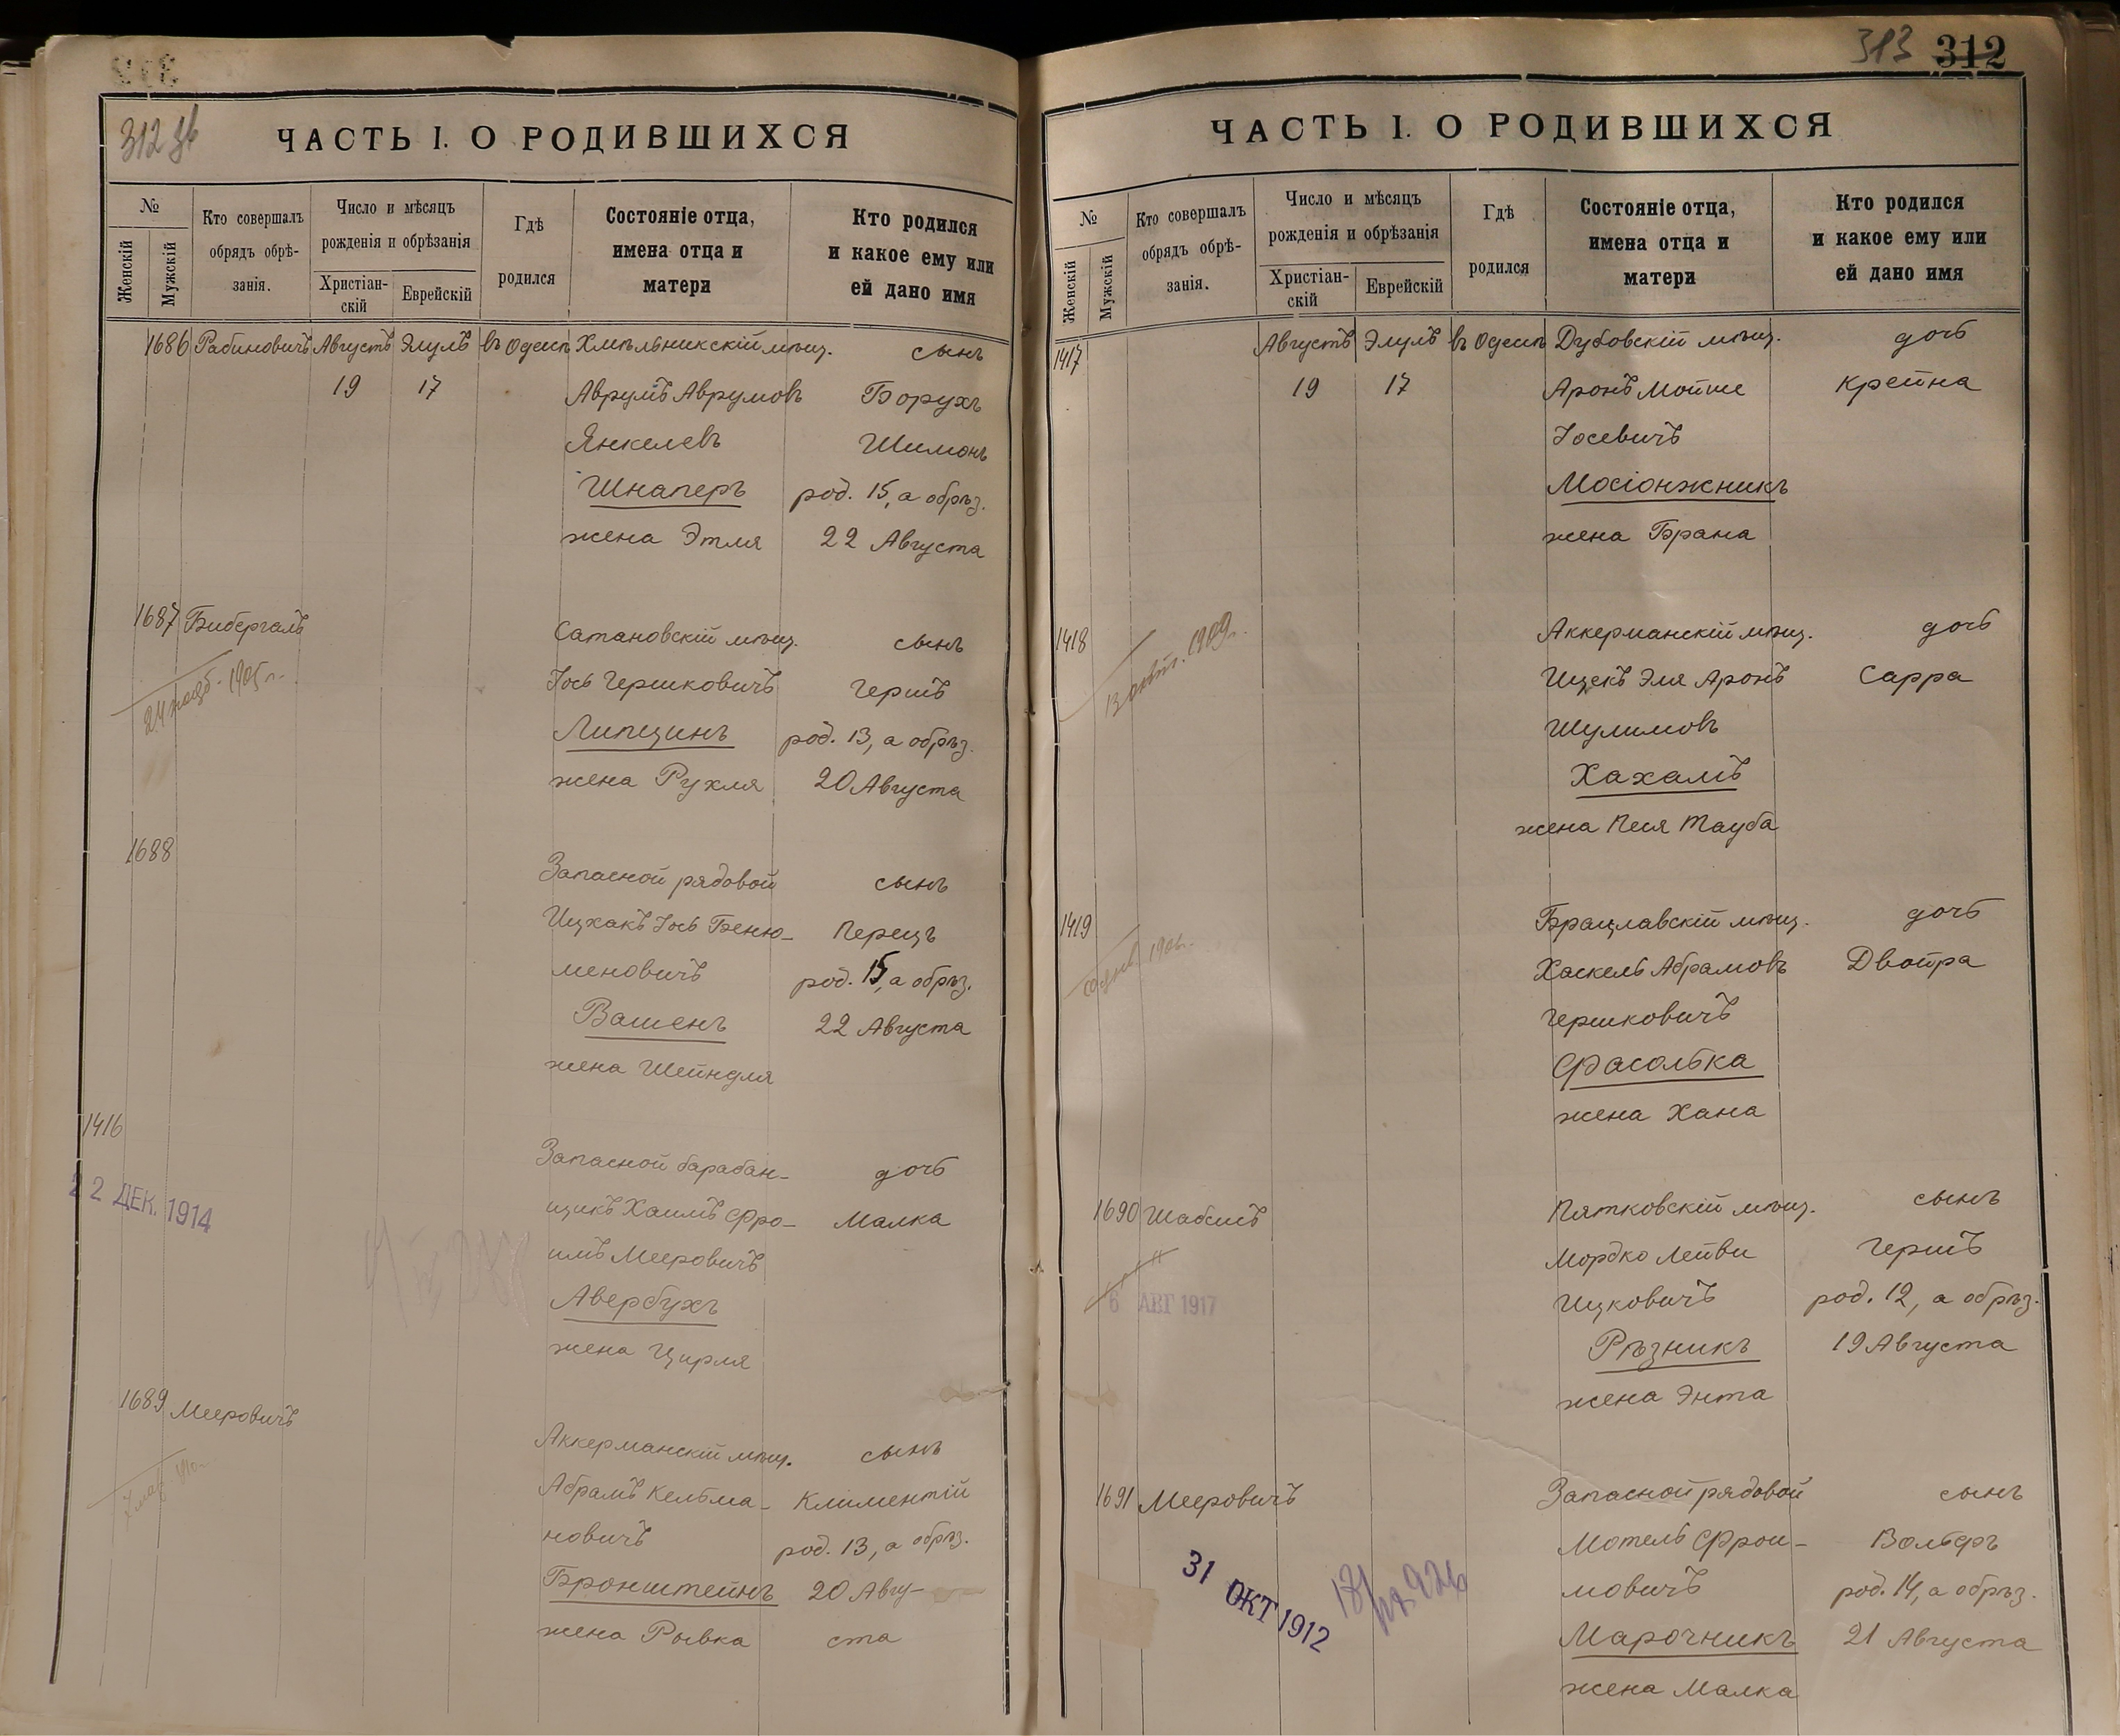 312 зв
ЧАСТЬ I. О РОДИВШИХСЯ
№
Женскій
Мужскій
Кто совершалъ
обрядъ обрѣ-
занія.
Число и мѣсяцъ
рожденія и обрѣзанія
Христіан-
скій
Еврейскій
Гдѣ
родился
Состояніе отца,
имена отца и
матери
Кто родился
и какое ему или
ей дано имя
1686 Рабиновичъ Августъ Элулъ въ Одессѣ Хмѣльникскій мѣщ. сынъ
19 17 Аврумъ Аврумовъ Борухъ
Янкелевъ Шимонъ
Шнаперъ род. 15, а обрѣз.
жена Этля 22 Августа
1687 Бибергалъ
Сатановскій мѣщ. сынъ
Іось Гершковичъ Гершъ
Липцинъ род. 13, а обрѣз.
жена Рухля 20 Августа
1688
Запасной рядовой сынъ
Ицхакъ Іось Беню- Перецъ
меновичъ род. 15, а обрѣз.
Вашенъ 22 Августа
жена Шейндля
1416
22 ДЕК. 1914
Запасной барабан- дочь
щикъ Хаимъ Фро- Малка
имъ Мееровичъ
Авербухъ
жена Цирля
1689 Мееровичъ
Аккерманскій мѣщ. сынъ
Абрамъ Кельма- Климентій
новичъ род. 13, а обрѣз.
Бронштейнъ 20 Авгу-
жена Рывка ста
313 312
ЧАСТЬ I. О РОДИВШИХСЯ
№
Женскій
Мужскій
Кто совершалъ
обрядъ обрѣ-
занія.
Число и мѣсяцъ
рожденія и обрѣзанія
Христіан-
скій
Еврейскій
Гдѣ
родился
Состояніе отца,
имена отца и
матери
Кто родился
и какое ему или
ей дано имя
1417 Августъ Элулъ въ Одессѣ Дубовскій мѣщ. дочь
19 17 Аронъ Мойше Крейна
Іосевичъ
Мосіонжникъ
жена Брана
1418
Аккерманскій мѣщ. дочь
Ицекъ Эля Аронъ Сарра
Шулимовъ
Хахамъ
жена Песя Тауба
1419
Брацлавскій мѣщ. дочь
Хаскель Абрамовъ Двойра
Гершковичъ
Фасолька
жена Хана
1690 Шабсисъ
6 АВГ 1917
Пятковскій мѣщ. сынъ
Мордко Лейви Гершъ
Ицковичъ род. 12, а обрѣз.
Рѣзникъ 19 Августа
жена Энта
1691 Мееровичъ
31 ОКТ 1912
Запасной рядовой сынъ
Мотель Фрои- Вольфъ
мовичъ род. 14, а обрѣз.
Марочникъ 21 Августа
жена Малка